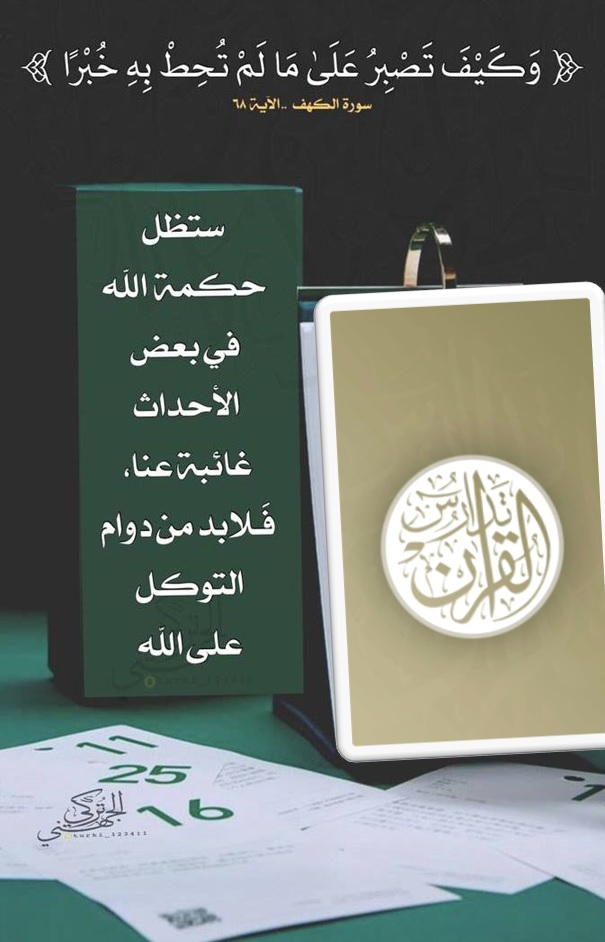 ﴿ وَكَيْفَ تَصْبِرُ عَلَىٰ مَا لَمْ تُحِطْ بِهِ خُبْرًا ﴾
سورة الكهف ..الآية ٦٨
ستظل
حكمة الله
في بعض
الأحداث
غائبة عنا،
فَلابد من دوام
التوكل
على الله
تَدَارُسُ
القرآن
11
25
16
1
التركي
الجهني
turki_123411